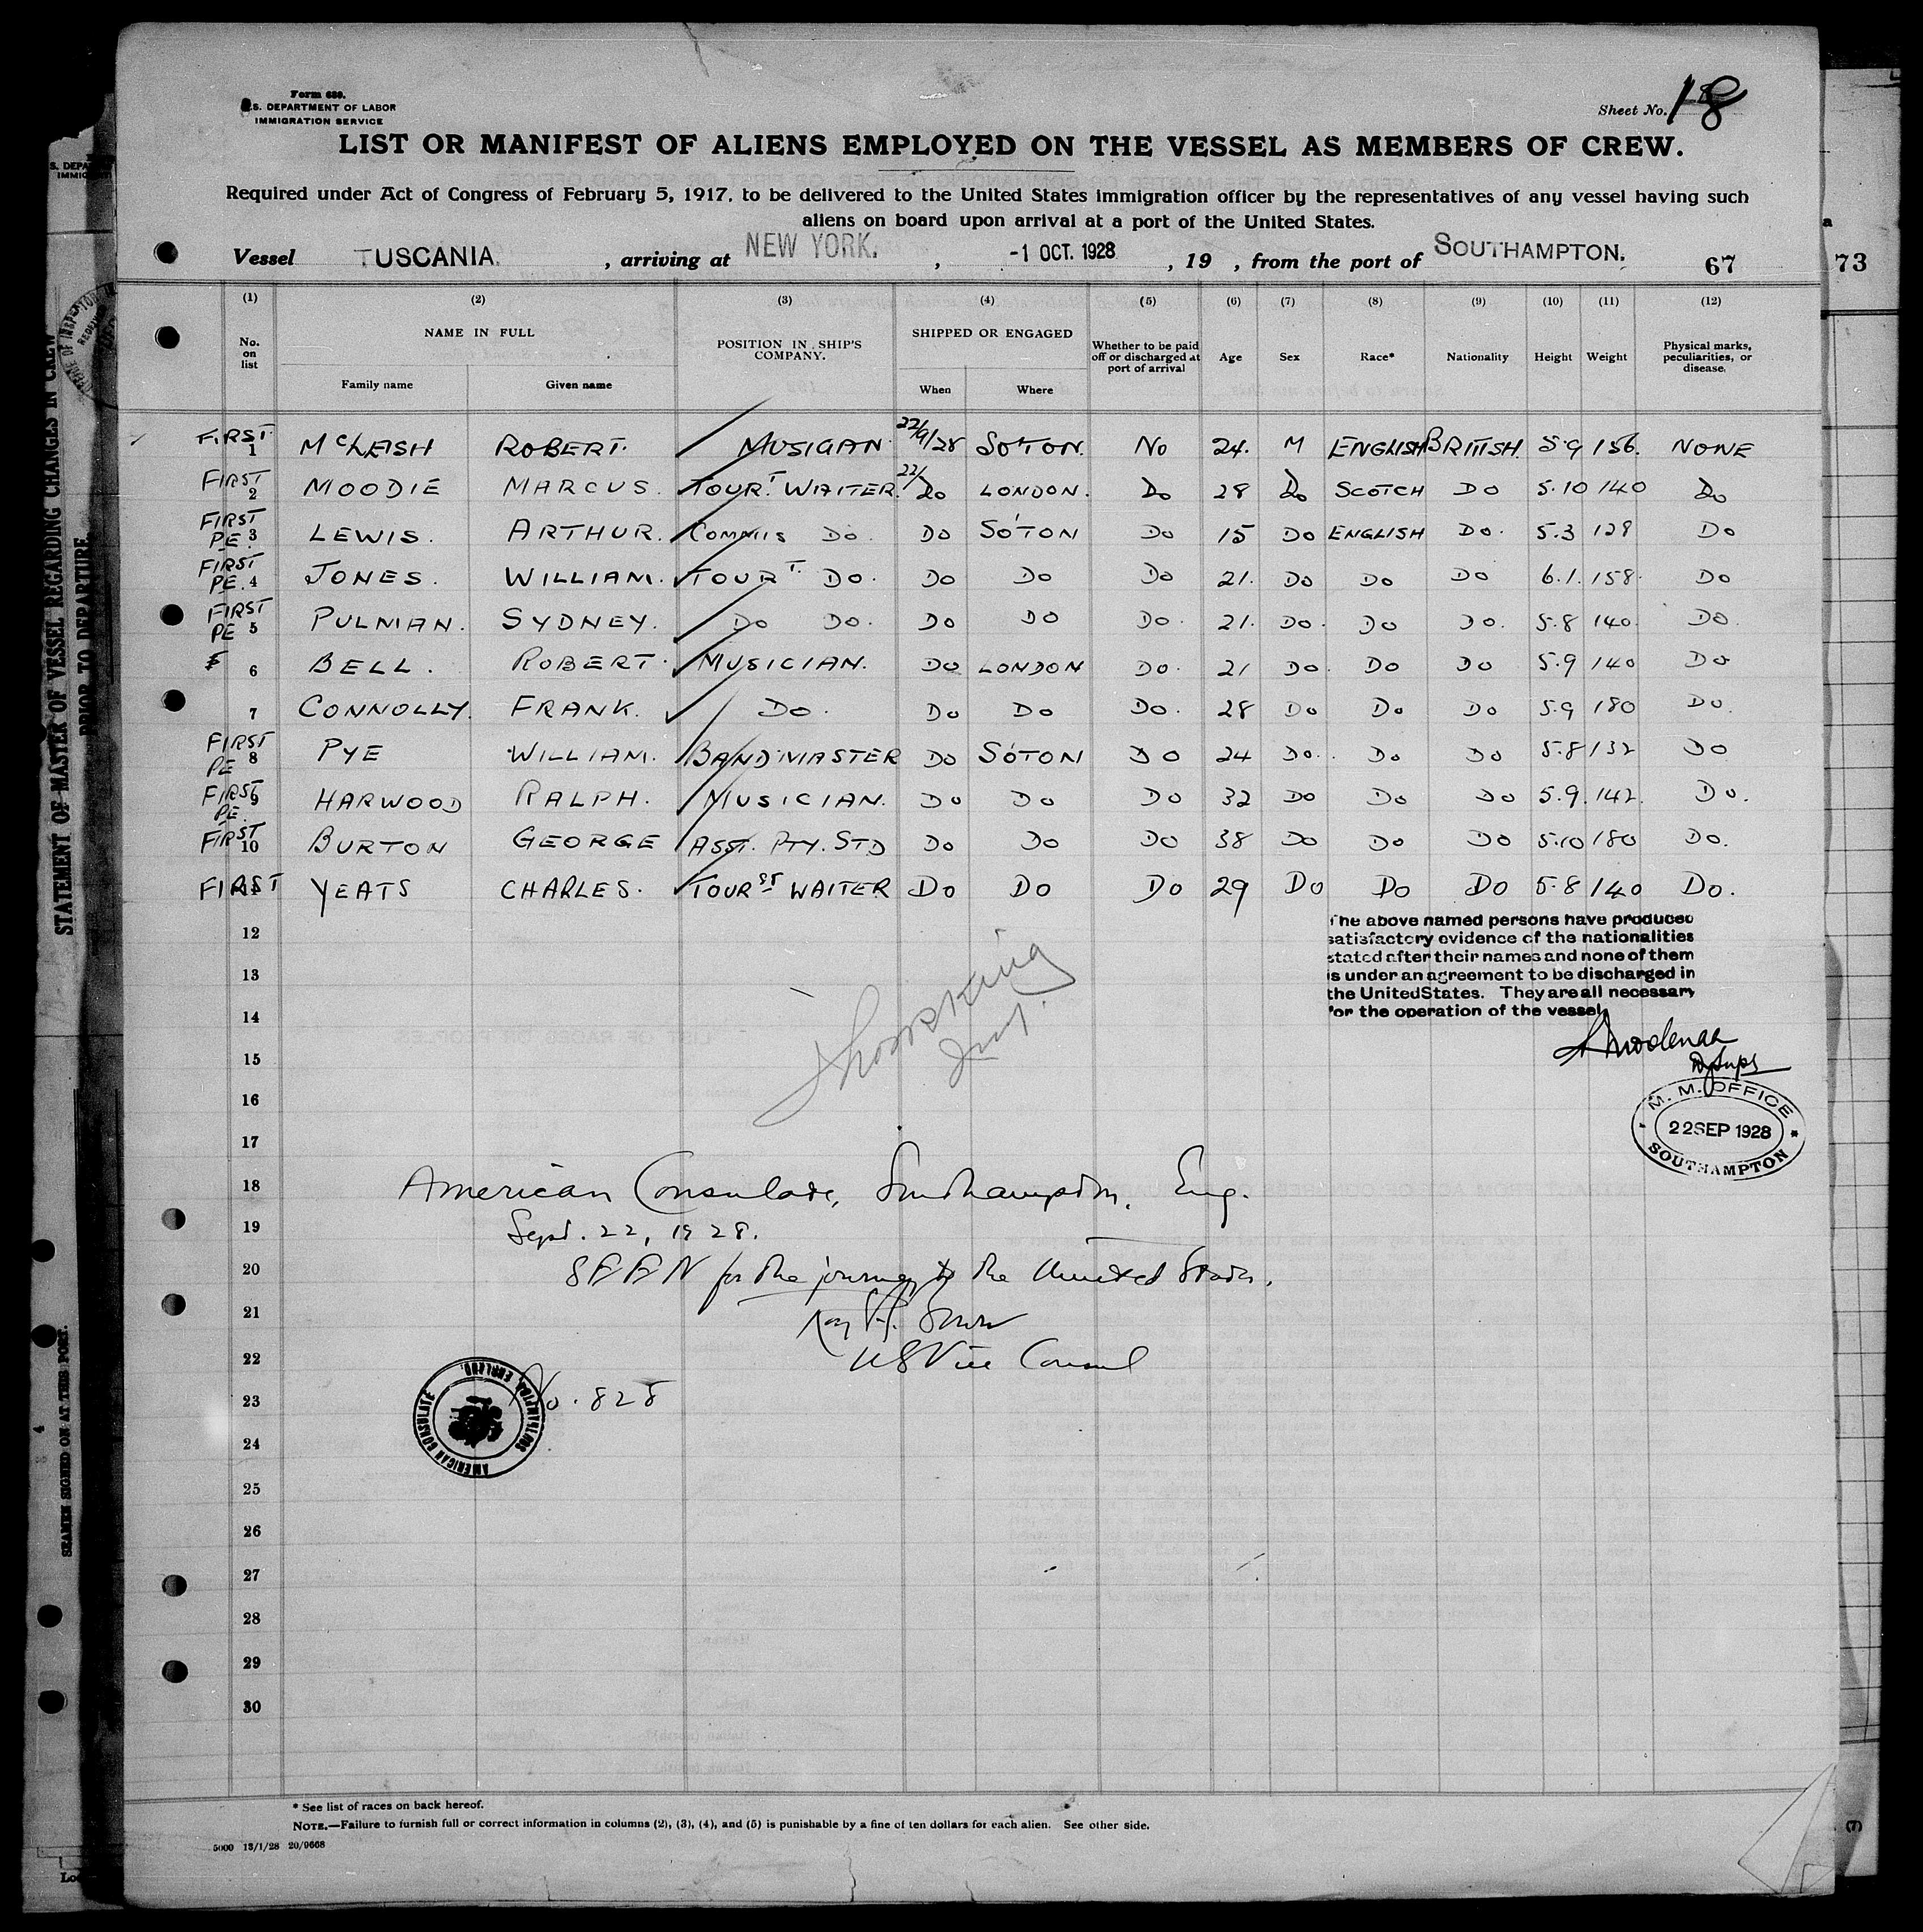 Form 689.
U.S. DEPARTMENT OF LABOR
IMMIGRATION SERVICE
Sheet No. 18
LIST OR MANIFEST OF ALIENS EMPLOYED ON THE VESSEL AS MEMBERS OF CREW.
Required under Act of Congress of February 5, 1917, to be delivered to the United States immigration officer by the representatives of any vessel having such
aliens on board upon arrival at a port of the United States.
Vessel TUSCANIA, arriving at NEW YORK. , -1 OCT. 1928 , 19 , from the port of SOUTHAMPTON. 67 73
(1) (2) (3) (4) (5) (6) (7) (8) (9) (10) (11) (12)
No. on list NAME IN FULL Family name Given name POSITION IN SHIP'S COMPANY. SHIPPED OR ENGAGED When Where Whether to be paid off or discharged at port of arrival Age Sex Race* Nationality Height Weight Physical marks, peculiarities, or disease.
FIRST 1 McLEISH ROBERT. MUSICIAN 22/9/28 SO'TON. NO 24. M ENGLISH BRITISH. 5.9 156. NONE
FIRST 2 MOODIE MARCUS. TOURT. WAITER. 22/ DO LONDON. DO 28 DO SCOTCH DO 5.10 140 DO
FIRST PE. 3 LEWIS. ARTHUR. COMMIS DO. DO SO'TON DO 15 DO ENGLISH DO. 5.3 128 DO
FIRST PE. 4 JONES. WILLIAM. TOURT. DO. DO DO DO 21. DO DO DO 6.1. 158. DO
FIRST PE 5 PULMAN. SYDNEY. DO DO. DO DO DO. 21. DO. DO DO. 5.8 140. DO.
F 6 BELL. ROBERT. MUSICIAN. DO LONDON DO. 21 DO. DO DO 5.9 140 DO
7 CONNOLLY. FRANK. DO. DO DO DO. 28 DO DO DO 5.9 180 DO.
FIRST PE 8 PYE WILLIAM. BANDMASTER DO SO'TON DO 24 DO. DO DO 5.8 132 DO
FIRST PE. 9 HARWOOD RALPH. MUSICIAN. DO DO DO 32 DO DO DO 5.9. 142. DO.
FIRST 10 BURTON GEORGE ASST. PTY. STD DO DO DO 38 DO DO DO 5.10 180 DO.
FIRST YEATS CHARLES. TOURST WAITER DO DO DO 29 DO DO DO 5.8 140 DO.
The above named persons have produced
satisfactory evidence of the nationalities
stated after their names and none of them
is under an agreement to be discharged in
the United States. They are all necessary
for the operation of the vessel.
M. M. OFFICE
22 SEP 1928
SOUTHAMPTON
12
13
14
15
16
17
18 American Consulate, Southampton, Eng.
19 Sept. 22, 1928.
20 SEEN for the journey to the United States.
21
22 US Vice Consul
23 No. 828
AMERICAN CONSULATE, SOUTHAMPTON, ENGLAND.
24
25
26
27
28
29
30
* See list of races on back hereof.
NOTE.—Failure to furnish full or correct information in columns (2), (3), (4), and (5) is punishable by a fine of ten dollars for each alien. See other side.
5000 13/1/28 20/9668
STATEMENT OF MASTER OF VESSEL REGARDING CHANGES IN CREW
PRIOR TO DEPARTURE
SEAMEN SIGNED ON AT THIS PORT.